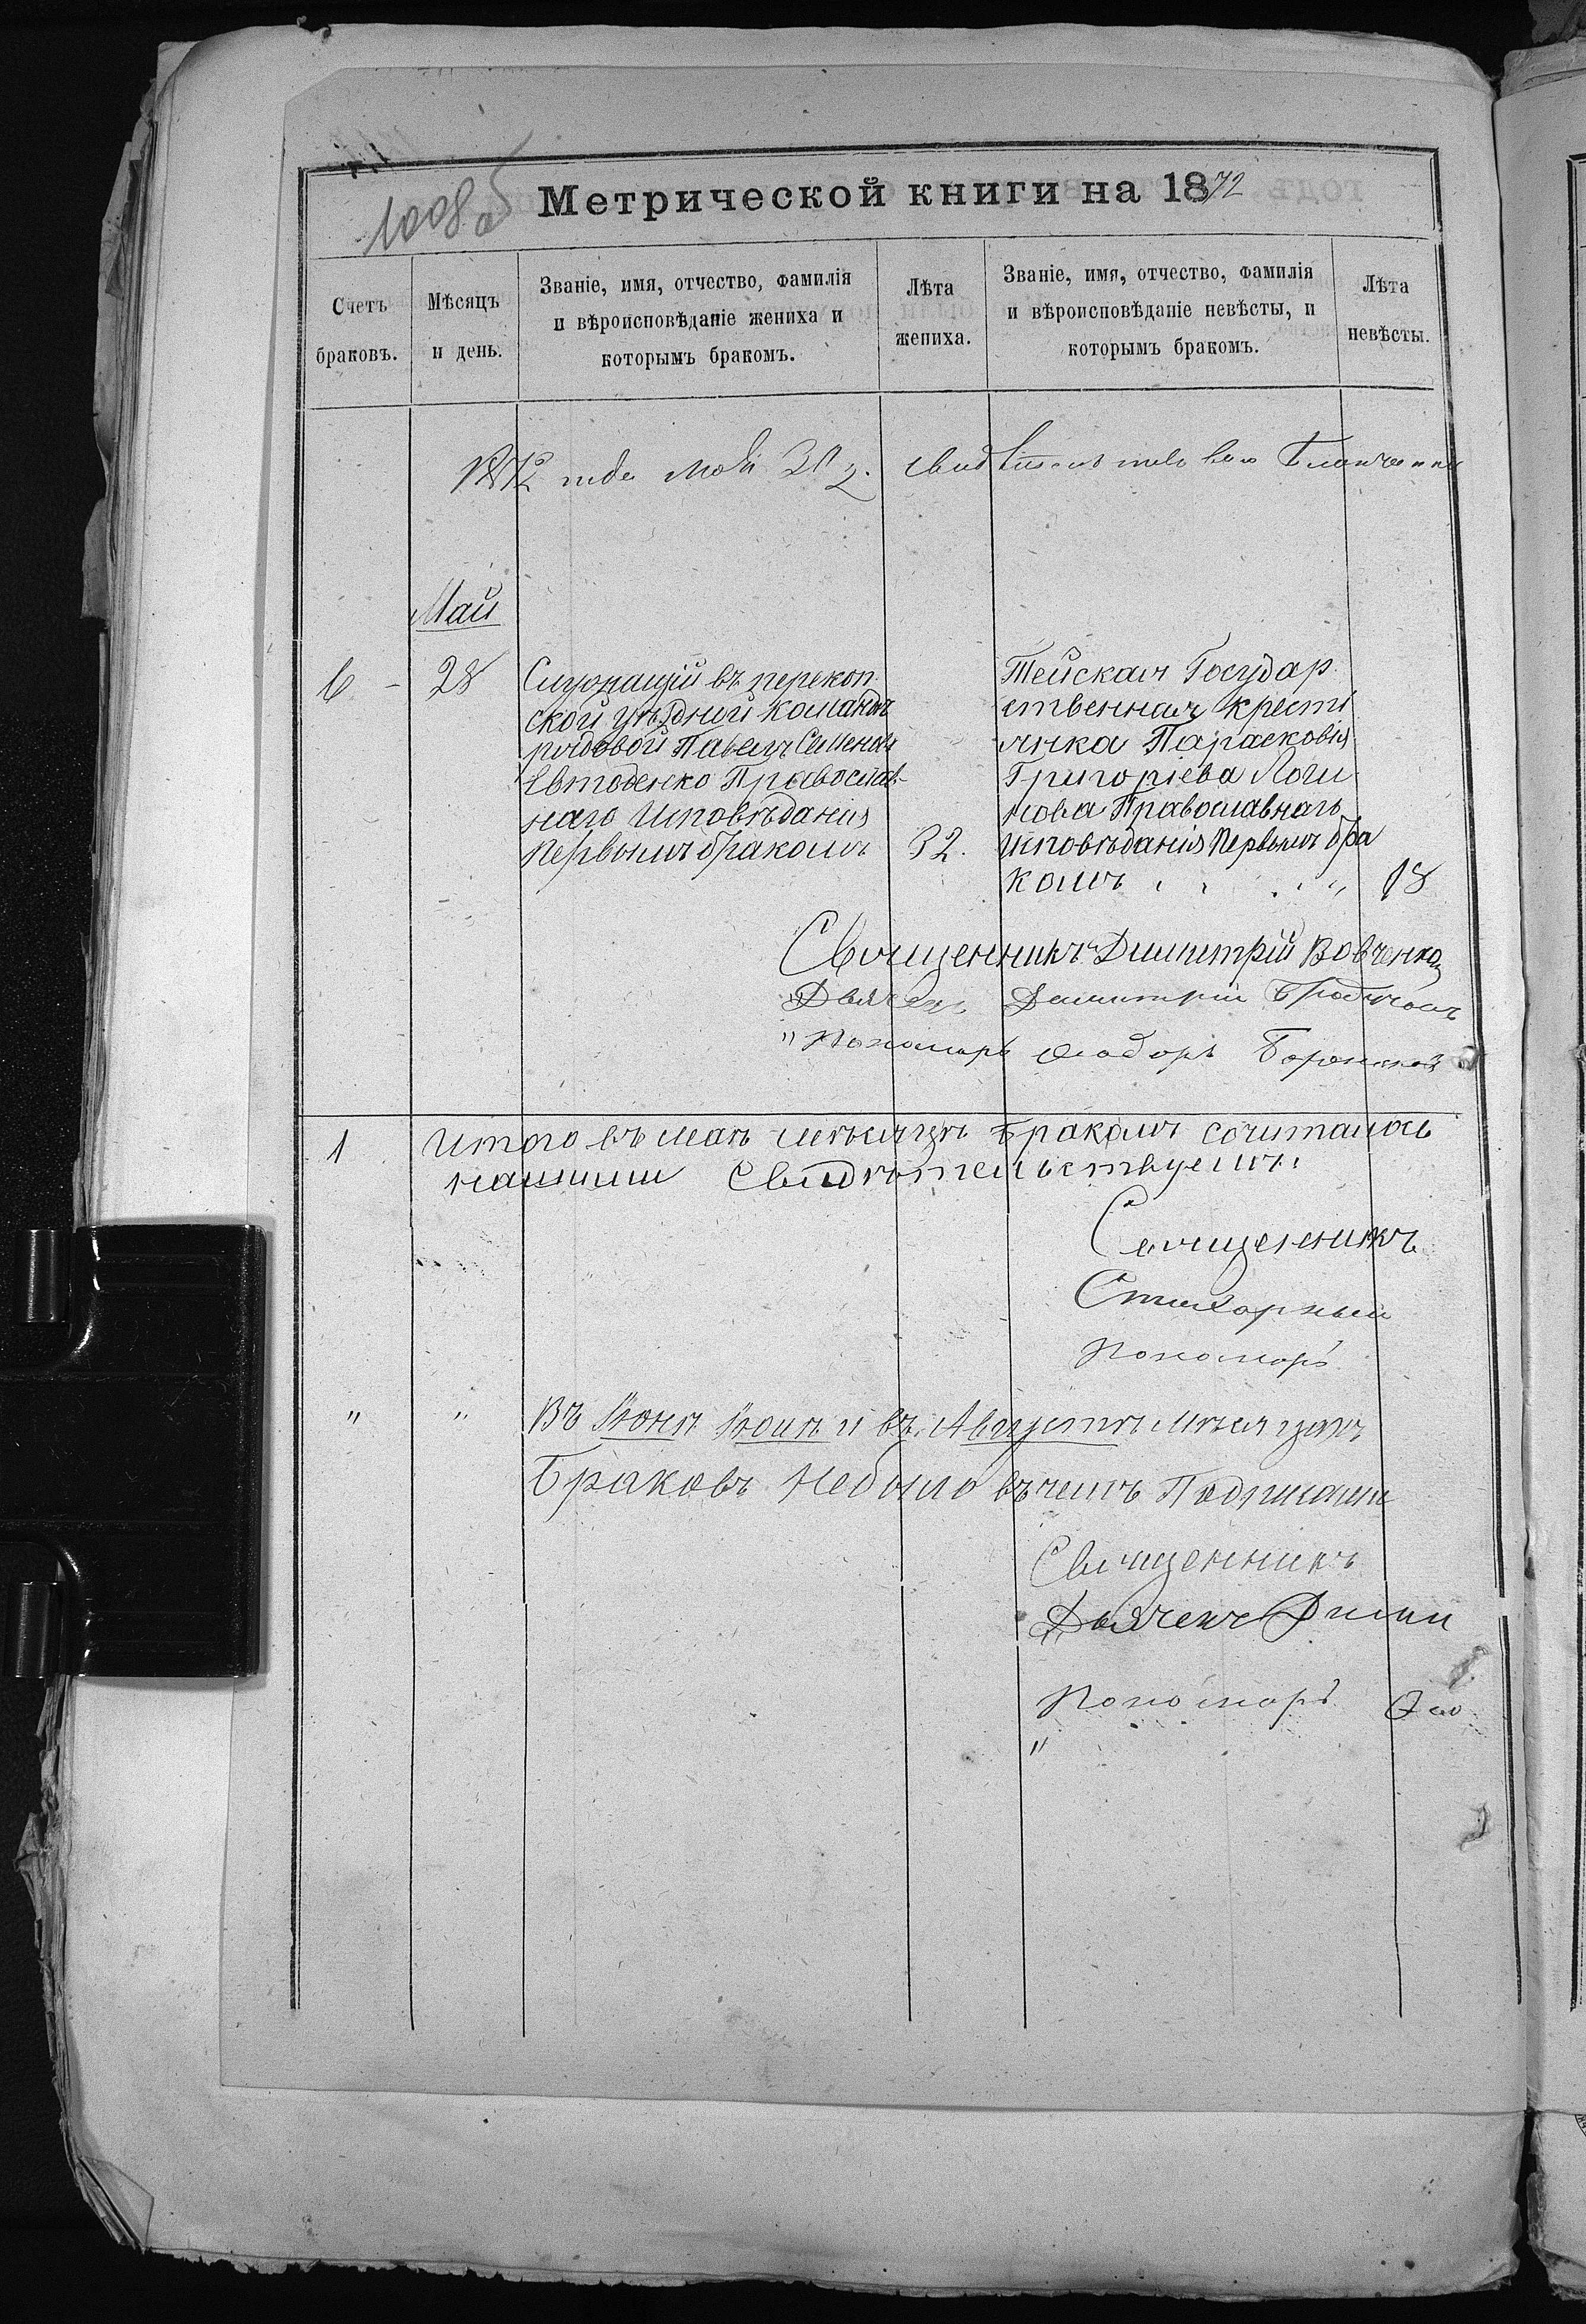 1008 об
Метрической книги на 1872
Счетъ браковъ.
Мѣсяцъ и день.
Званіе, имя, отчество, фамилія
и вѣроисповѣданіе жениха и
которымъ бракомъ.
Лѣта жениха.
Званіе, имя, отчество, фамилія
и вѣроисповѣданіе невѣсты, и
которымъ бракомъ.
Лѣта невѣсты.
1872 года Мая
Май
6 - 28
Служащій въ перекоп
ской уѣздной командѣ
рядовой Павелъ Семеновъ
Евтоденко Православ-
наго Исповѣданія
Первымъ бракомъ 32.
Тейская Государ
ственная крестъ
янка Парасковія
Григоріева Логи
нова Православнаго
Исповѣданія Первымъ бра
комъ 18
Священникъ Димитрій Вовченко
Дьячекъ Димитрій
Пономарь Ѳеодоръ
1 Итого въ маѣ мѣсяцѣ бракомъ сочиталось
Свидѣтельствуемъ
Священникъ
Стихарный
Пономарь
" " Въ Іюнѣ Іюлѣ и въ Августѣ мѣсяцахъ
Браковъ Небыло въ чемъ Подписали
Священникъ
Дьячекъ Дими
Пономарь Ѳео
"